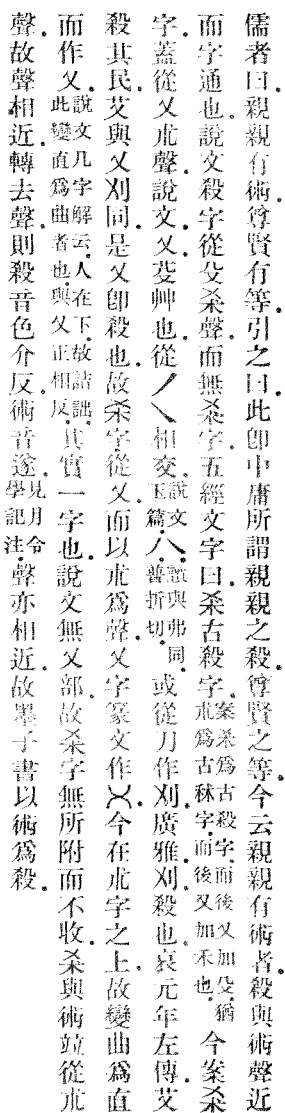 儒者曰。親親有術。尊賢有等。引之曰。此卽中庸所謂親親之殺。尊賢之等。今云親親有術者。殺與術聲近
而字通也。說文殺字從殳杀聲。而無杀字。五經文字曰。杀古殺字。案杀爲古殺字。而後又加殳。猶朮爲古秫字。而後又加禾也。今案杀
字。蓋從乂朮聲。說文。乂。芟艸也。從丿乀相交。說文乀讀與弗同。玉篇乀普折切。或從刀作刈。廣雅。刈。殺也。哀元年左傳艾
殺其民。艾與乂刈同。是乂卽殺也。故杀字從乂。而以朮爲聲。乂字篆文作㐅。今在朮字之上。故變曲爲直
而作乂。說文几字解云。人在下。故詰詘。此變直爲曲者也。與乂正相反。其實一字也。說文無乂部。故杀字無所附而不收。杀與術竝從朮
聲。故聲相近。轉去聲。則殺音色介反。術音遂。見月令學記注。聲亦相近。故墨子書以術爲殺。